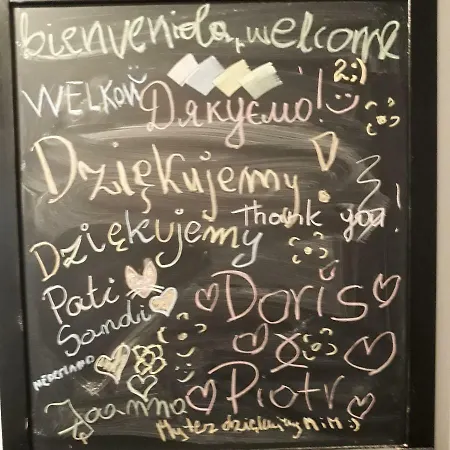 bienvenida, welcome
WELKOM
Дякуємо! :)
Dziękujemy
Thank you!
Dziękujemy
Pati
Sandi
Doris
NEDERLAND
&
Piotr
Joanna
My też dziękujemy M i M :)